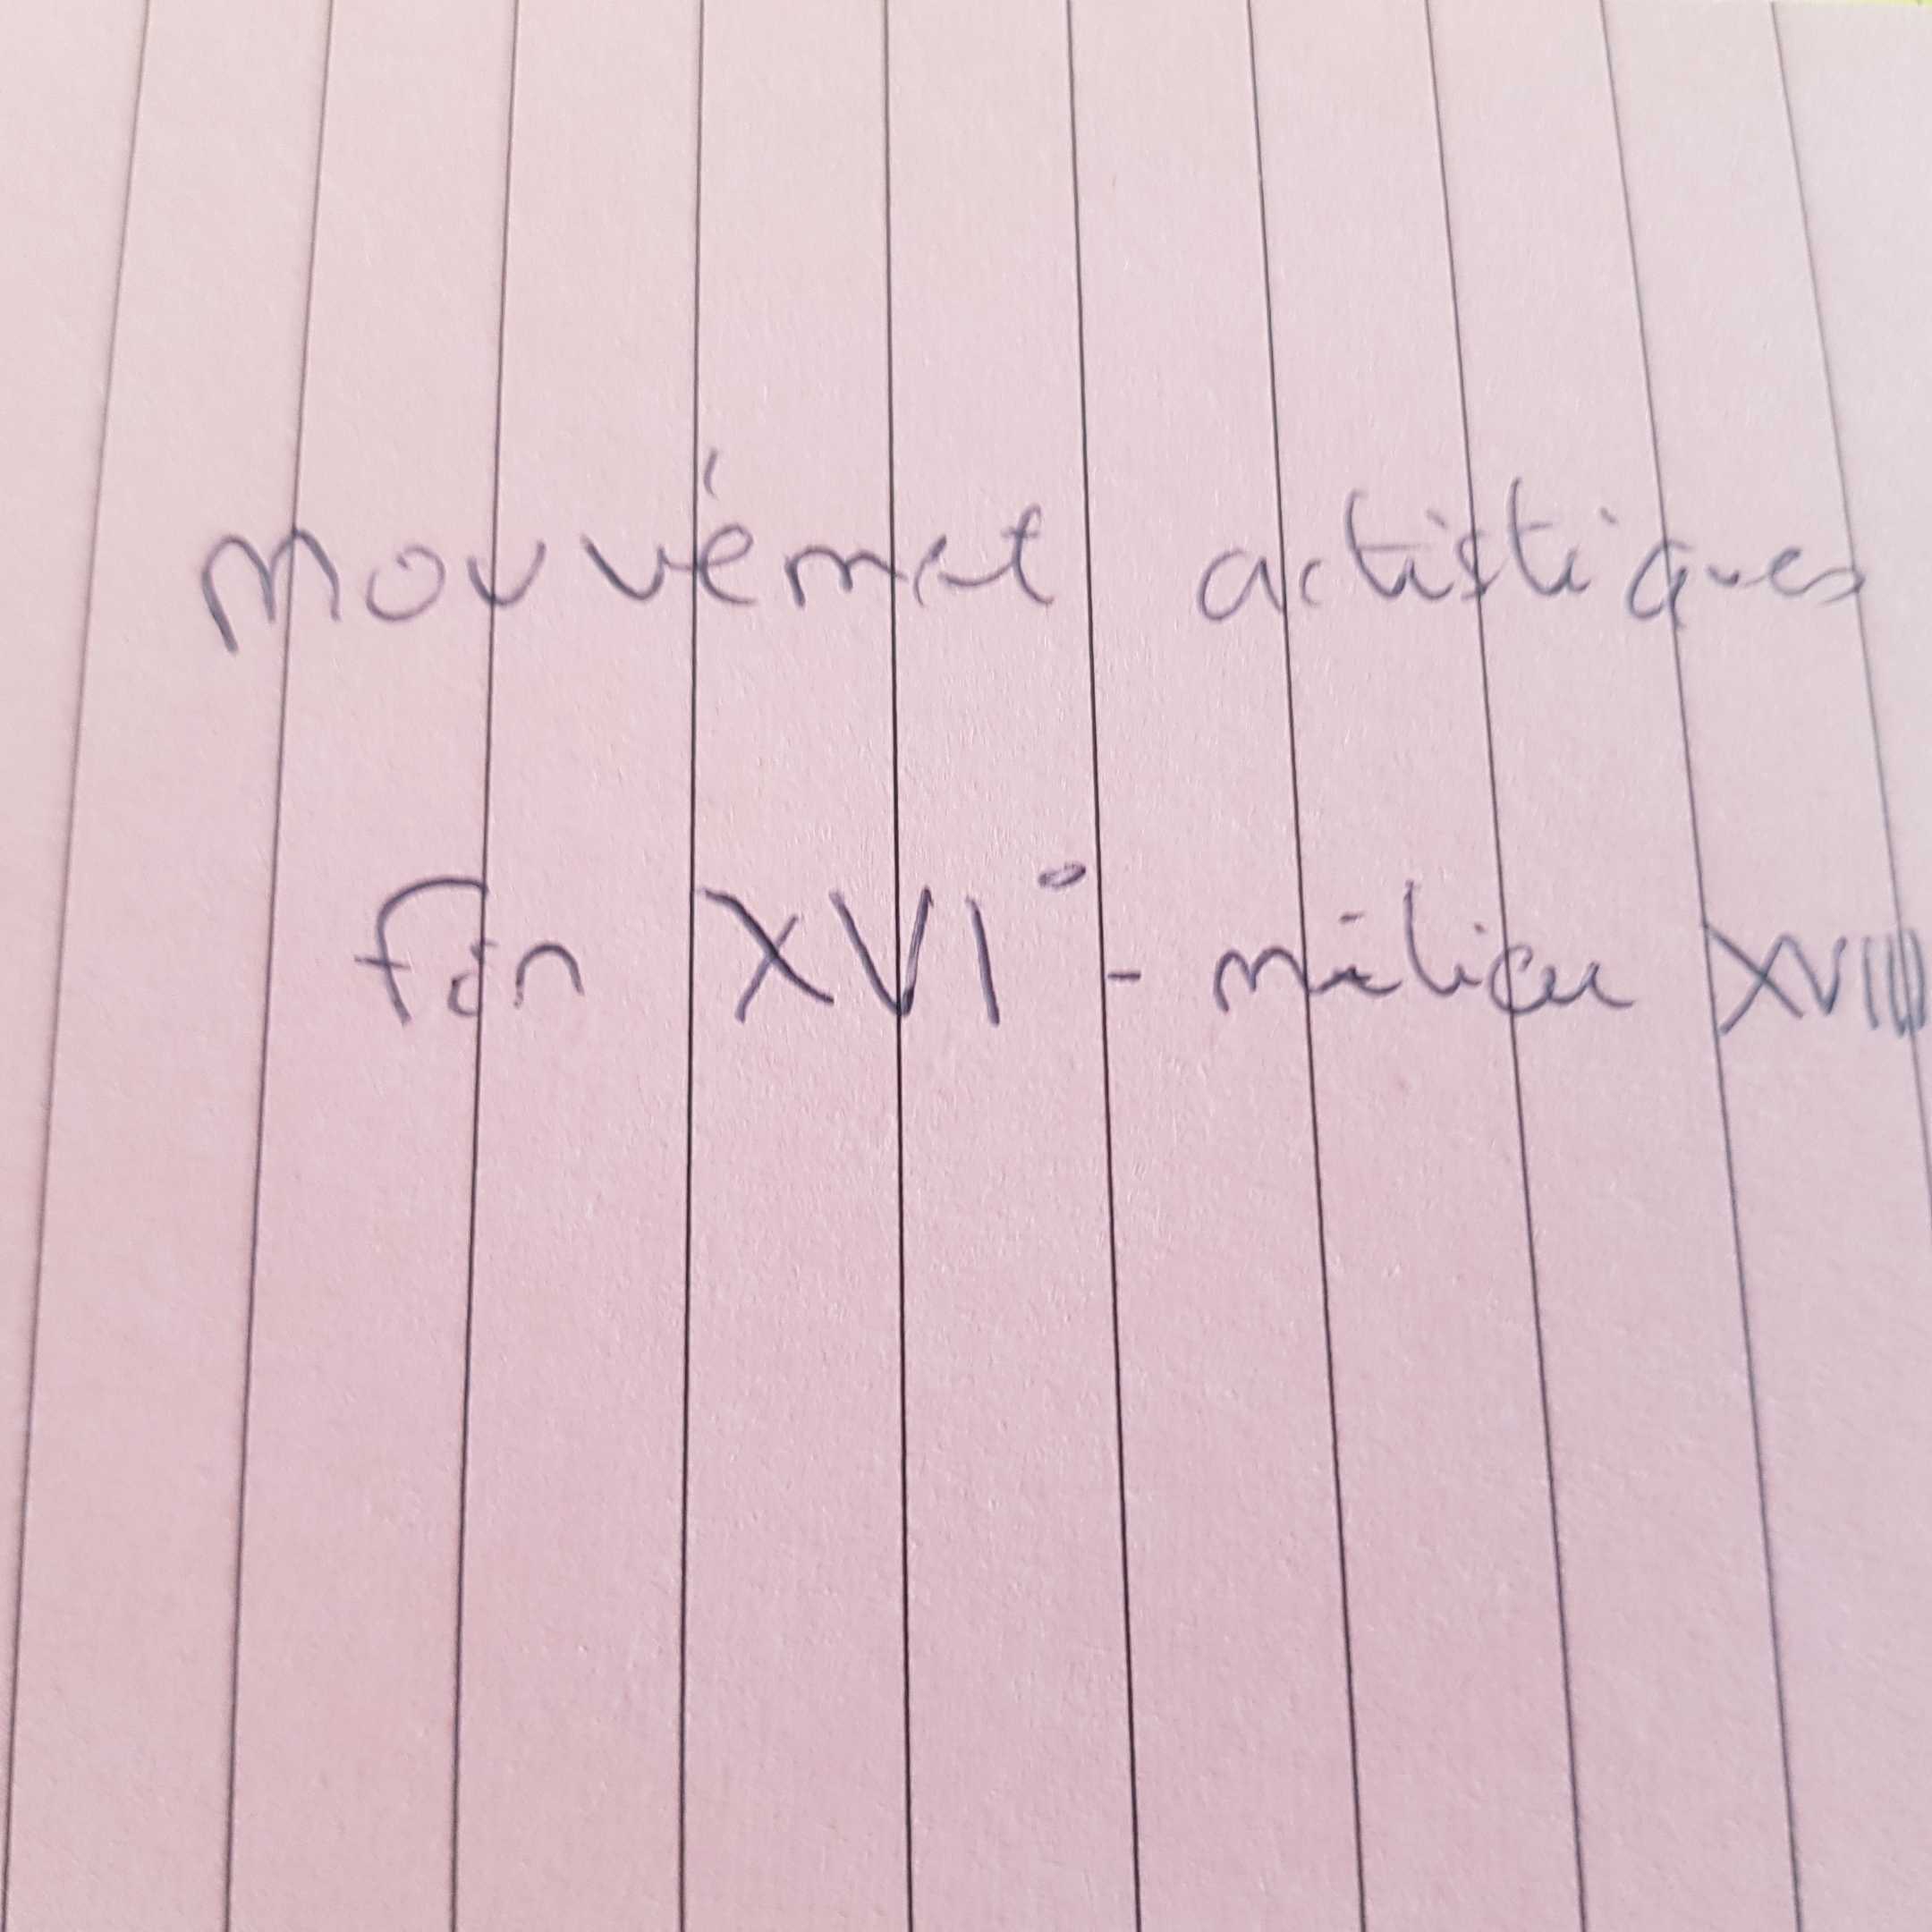 mouvémet artistiques
fin XVI° - milieu XVIII